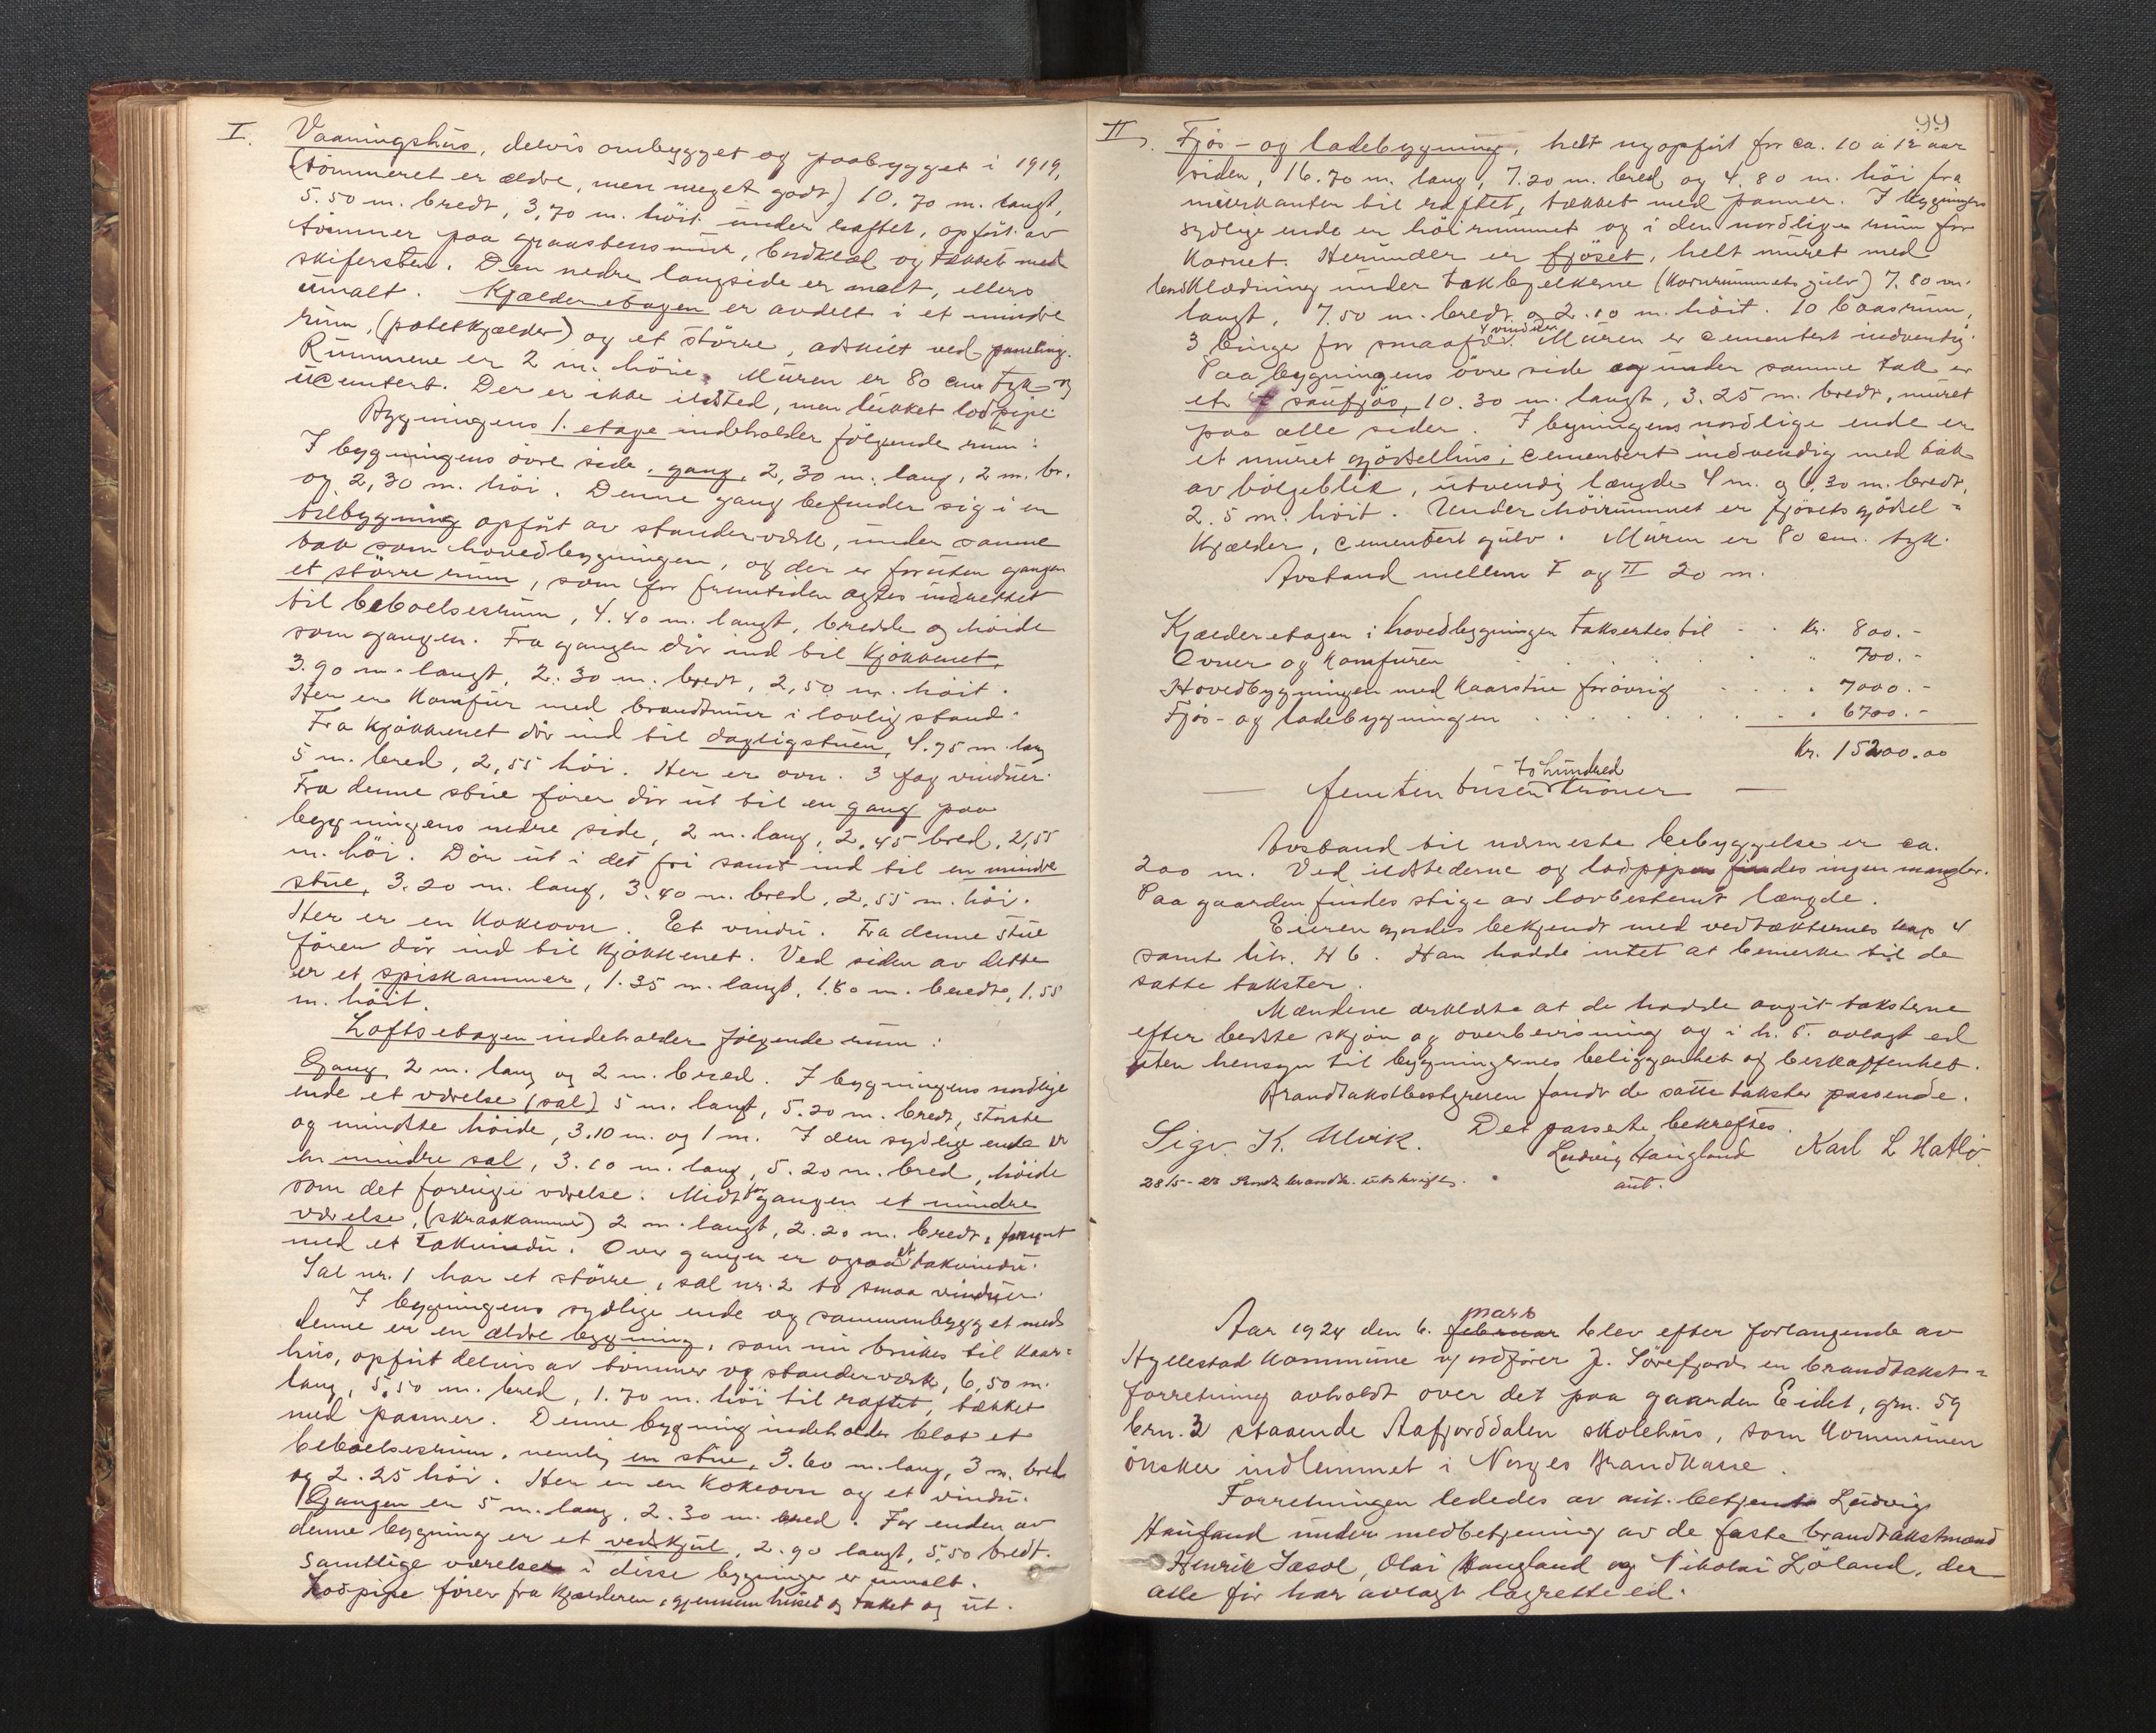 I. Vaaningshus, delvis ombygget og paabygget i 1919,
(tömmeret er ældre, men meget godt) 10.70 m. langt,
5.50 m. bredt, 3,70 m. höit under raftet, opfört av
tömmer paa graastensmur, bordklæd og tækket med
skifersten. Den nedre langside er malt, ellers
umalt. Kjælderetagen er avdelt i et mindre
rum, (potetkjælder) og et större, adskilt ved paneling.
Rummene er 2 m. höie. Muren er 80 cm tyk og
ucementert. Der er ikke ildsted, men lukket lodpipe.
Bygningens 1. etage indeholder fölgende rum:
I bygningens övre side, gang, 2,30 m. lang, 2 m. br.
og 2,30 m. höi. Denne gang befinder sig i en
tilbygning opfört av standerværk, under samme
tak som hovedbygningen, og der er foruten gangen
et större rum, som for fremtiden agtes indrettet
til beboelsesrum, 4.40 m. langt, bredde og höide
som gangen. Fra gangen dör ind til kjökkenet,
3.90 m. langt, 2.30 m. bredt, 2,50 m. höit.
Her er komfur med brandmur i lovlig stand.
Fra kjökkenet dör ind til dagligstuen, 4.75 m. lang
5 m. bred, 2,55 höi. Her er ovn. 3 fag vinduer.
Fra denne stue förer dör ut til en gang paa
bygningens nedre side, 2 m. lang, 2.45 bred, 2,55
m. höi. Dör ut i det fri samt ind til en mindre
stue, 3.20 m. lang, 3.40 m. bred, 2.55 m. höi.
Her er en kokeovn. Et vindu. Fra denne stue
förer dör ind til kjökkenet. Ved siden av dette
er et spiskammer, 1.35 m. langt, 1.80 m. bredt, 1.55
m. höit.
Loftsetagen indeholder fölgende rum:
Gang 2 m. lang og 2 m. bred. I bygningens nordlige
ende et værelse (sal) 5 m. langt, 5.20 m. bredt, störste
og mindste höide, 3.10 m. og 1 m. I den sydlige ende er
en mindre sal, 3.10 m. lang, 5.20 m. bred, höide
som det forrige værelse. Midt for gangen et mindre
værelse, (skraakammer) 2 m. langt, 2.20 m. bredt, forsynt
med et takvindu. Over gangen er ogsaa et takvindu.
Sal nr. 1 har et större, sal nr. 2 to smaa vinduer.
I bygningens sydlige ende og sammenbygget med
denne er en ældre bygning, som nu brukes til kaar=
hus, opfört delvis av tömmer og standerværk, 6,50 m.
lang, 5,50 m. bred, 1.70 m. höi til raftet, tækket
med panner. Denne bygning indeholder blot et
beboelsesrum, nemlig en stue, 3.60 m. lang, 3 m. bred
og 2.25 höi. Her en en kokeovn og et vindu.
Gangen er 5 m. lang, 2.30 m. bred. For enden av
denne bygning er et vedskjul, 2.90 langt, 5,50 bredt.
Samtlige værelser i disse bygninger er umalt.
Lodpipe förer fra kjælderen, gjennem huset og taket og ut.
99
II. Fjös- og ladebygning, helt nyopfört for ca. 10 a 12 aar
siden, 16.70 m. lang, 7.20 m. bred og 4.80 m. höi fra
murkanten til raftet, tækket med panner. I bygningens
sydlige ende er höirummet og i den nordlige rum for
kornet. Herunder er fjöset, helt muret med
bordklædning under takbjelkerne (kornrummets gulv) 7.80 m.
langt, 7.50 m. bredt og 2.10 m. höit. 10 baasrum,
3 binger for smaafæ. 4 vinduer. Muren er cementert indvendig.
Paa bygningens övre side og under samme tak er
et saufjös, 10.30 m. langt, 3.25 m. bredt, muret
paa alle sider. I bygningens nordlige ende er
et muret gjödselhus, cementert indvendig med tak
av bölgeblik, utvendig længde 4 m. og 6,30 m. bredt,
2.5 m. höit. Under höirummet er fjösets gjödsel=
kjælder, cementert gulv. Muren er 80 cm. tyk.
Avstand mellem I og II 20 m.
Kjælderetagen i hovedbygningen taksertes til - - Kr. 800.-
Ovner og komfuren . . . . . " 700.-
Hovedbygningen med kaarstue forövrig . . . . 7000.-
Fjös- og ladebygningen . . . . . . . 6700.-
Kr. 15200.00
— femten tusen to hundred kroner —
Avstand til nærmeste bebyggelse er ca.
200 m. Ved ildstederne og lodpipen findes ingen mangler.
Paa gaarden findes stige av lovbestemt længde.
Eieren gjordes bekjendt med vedtækternes kap 4
samt litr. H 6. Han hadde intet at bemerke til de
satte takster.
Mændene erklærte at de hadde avgit taksterne
efter bedste skjön og overbevisning og i h. t. avlagt ed
uten hensyn til bygningernes beliggenhet og beskaffenhet.
Brandtakstbestyreren fandt de satte takster passende.
Det passerte bekreftes.
Sigv. K. Ulvik. Ludvig Haugland Karl L Hatlö.
aut.
28/5-23 Sendt brandk. utskrift.
Aar 1924 den 6. februar mars blev efter forlangende av
Hyllestad kommune v/ ordförer J. Sörefjord en brandtakst=
forretning avholdt over det paa gaarden Eidet, grn. 59
brn. 3 staaende Aafjorddalen skolehus, som kommunen
önsker indlemmet i Norges Brandkasse.
Forretningen lededes av aut. betjent Ludvig
Haugland under medbetjening av de faste brandtakstmænd
Henrik Sæsol, Olai Haugland og Nikolai Löland, der
alle för har avlagt lagretteed.